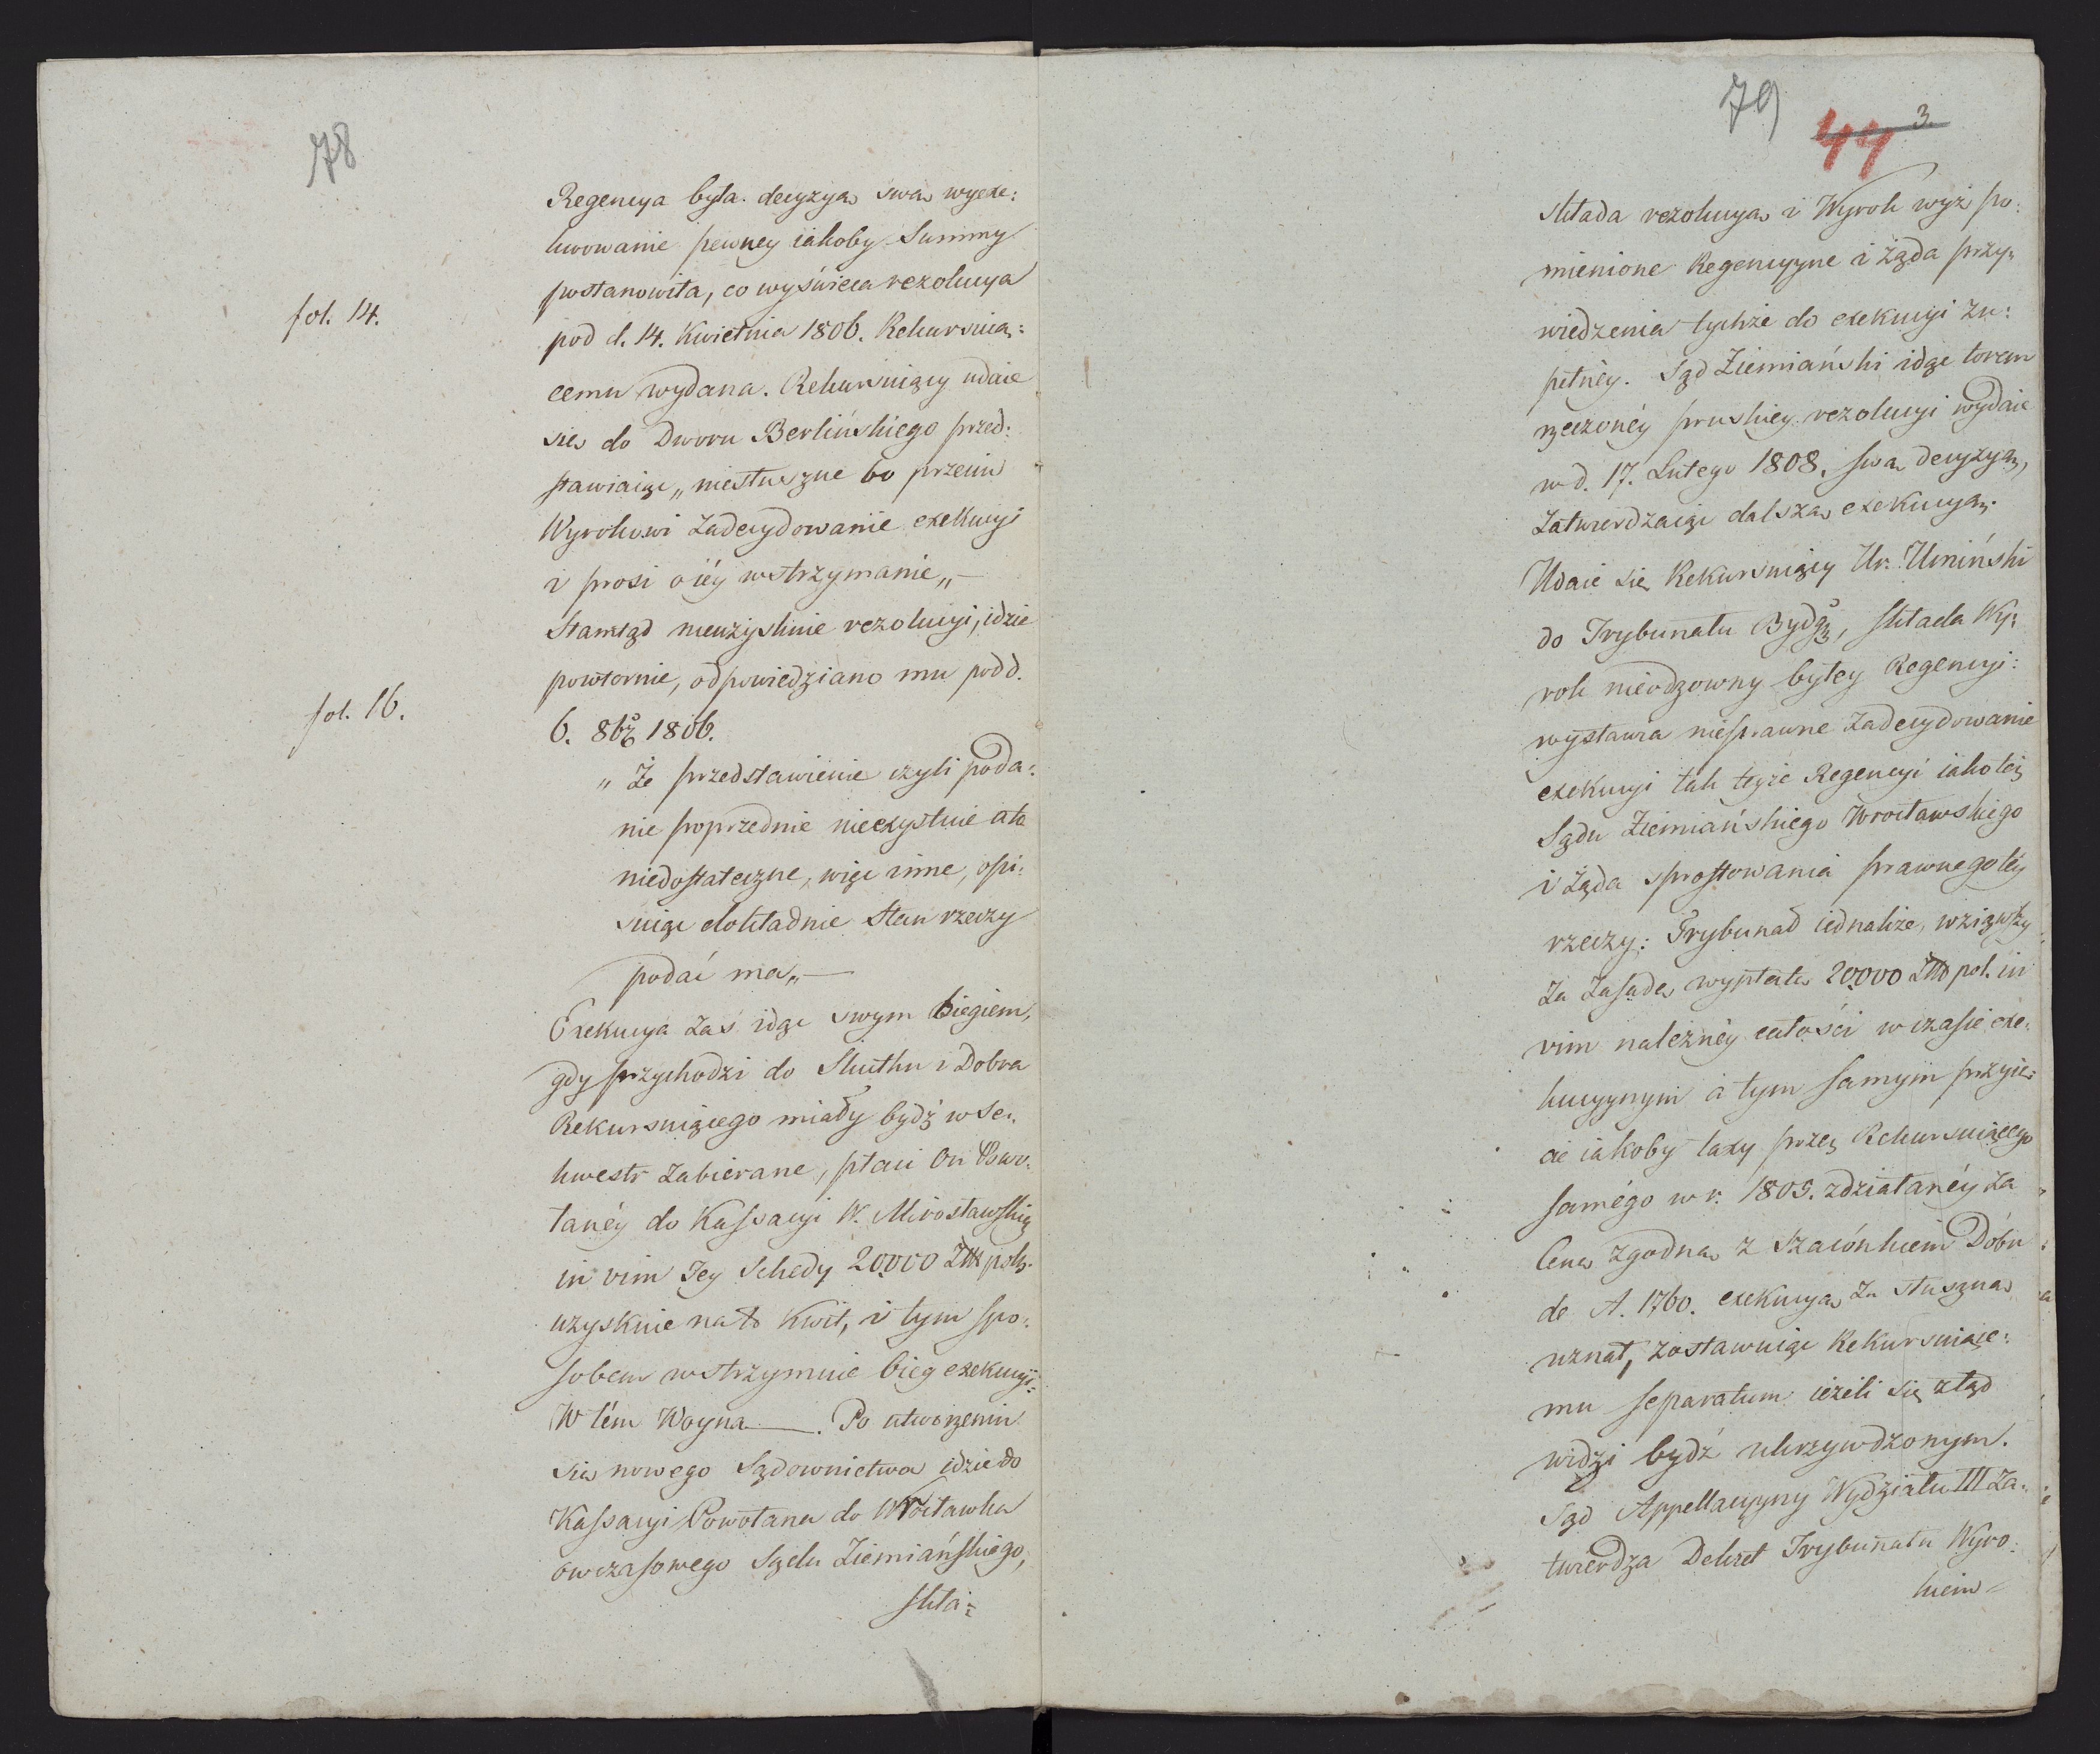 78
Regencya była decyzyą swą wyexe:
kwowanie pewney iakoby Summy
postanowiła, co wyświeca rezolucya
fol. 14.
pod d. 14. Kwietnia 1806. Rekursuią:
cemu wydana. Rekursuiący udaie
się do Dworu Berlińskiego przed:
stawiaiąc „niesłuszne bo przeciw
Wyrokowi zadecydowanie exekucyi
i prosi o iéy wstrzymanie„ —
Stamtąd nieuzyskuie rezolucyi, idzie
powtornie, odpowiedziano mu pod d.
fol. 16.
6. 8br 1806.
„Że przedstawienie czyli poda:
nie poprzednie nieczystnie ale
niedostateczne, więc inne, opi:
suiąc dokładnie Stan rzeczy
podać ma„ —
Exekucya zaś idąc swym biegiem,
gdy przychodzi do Skutku i Dobra
Rekursuiącego miały bydź w Se:
kwestr zabierane, płaci On Powo:
łanéy do Kassacyi W. Mirosławskiey
in vim Jey Schedy 20000 Złł polh.
uzyskuie na to Kwit, i tym spo:
sobem wstrzymuie bieg exekucyi:
W tém Woyna —. Po utworzeniu
się nowego Sądownictwa idzie do
Kassacyi Powołana do Wrocławka
owczasowego Sądu Ziemiańskiego,
skła:
79
44 3.
składa rezolucyą i Wyrok wyż po:
mienione Regencyyne i żąda przy:
wiedzenia tychże do exekucyi zu:
pełnéy. Sąd Ziemiański idąc torem
rzeczonéy pruskiey rezolucyi wydaie
w d. 17. Lutego 1808. swą decyzyą,
zatwierdzaiąc dalszą exekucyą.
Udaie się Rekursuiący Ur. Umiński
do Trybunału Bydg., składa Wy:
rok nieodzowny byłey Regencyi:
wystawia niesprawne zadecydowanie
exekucyi tak teyże Regencyi iakoteż
Sądu Ziemiańskiego Wrocławskiego
i żąda sprostowania prawnego téy
rzeczy: Trybunał iednakże, wziąwszy
za zasadę wypłatę 20000 Złł pol. in
vim należnéy całości w czasie exe:
kucyynym a tym samym przyię:
cie iakoby taxy przez Rekursuiącego
samégo w r. 1805. zdziałanéy za
Ceną zgodną z szacónkiem Dóbr
de A. 1760. exekucyą za słuszną
uznał, zostawuiąc Rekursuiące:
mu separatum ieżeli się ztąd
widzi bydź ukrzywdzonym.
Sąd Appellacyyny Wydziału III za:
twierdza Dekret Trybunału Wyro:
kiem